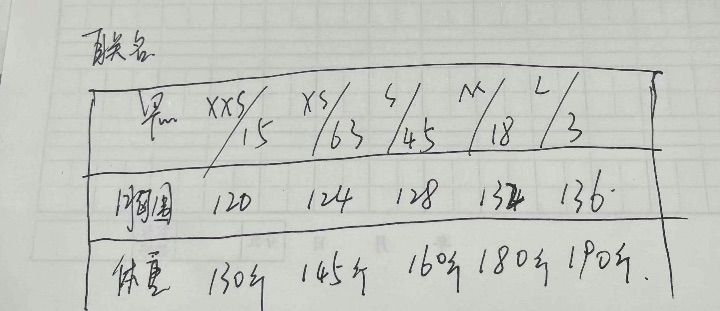 联名
黑 XXS/15 XS/63 S/45 M/18 L/3
胸围 120 124 128 132 136
体重 130斤 145斤 160斤 180斤 190斤
年 月 日